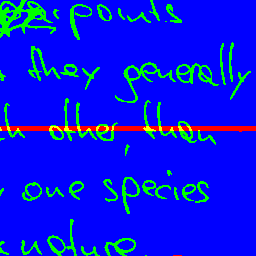 points
they generally
other than
one species
nature